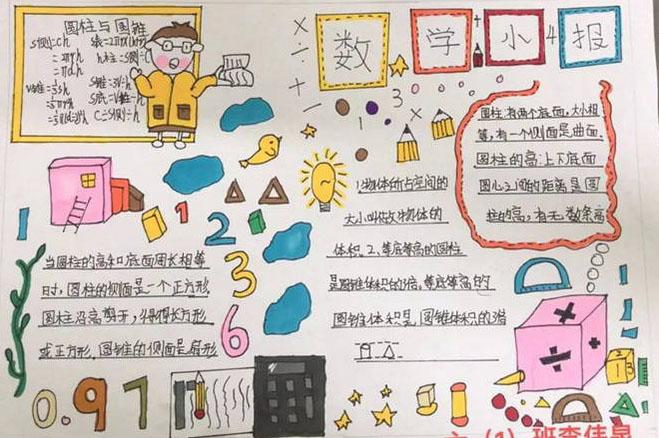 数学小报
圆柱与圆锥
S侧=ch
=πdh
圆柱:有两个底面,大小相
等,有一个侧面是曲面.
圆柱的高:上下底面
圆心之间的距离是圆
柱的高,有无数条高
1物体所占空间的
大小叫做物体的
体积.2、等底等高的圆柱
是圆锥体积的3倍.等底等高的
圆锥体积是圆锥体积的
当圆柱的高和底面周长相等
时,圆柱的侧面是一个正方形
圆柱沿高剪开,得长方形
或正方形.圆锥的侧面是扇形
1
2
3
6
0.97
(1)班李佳